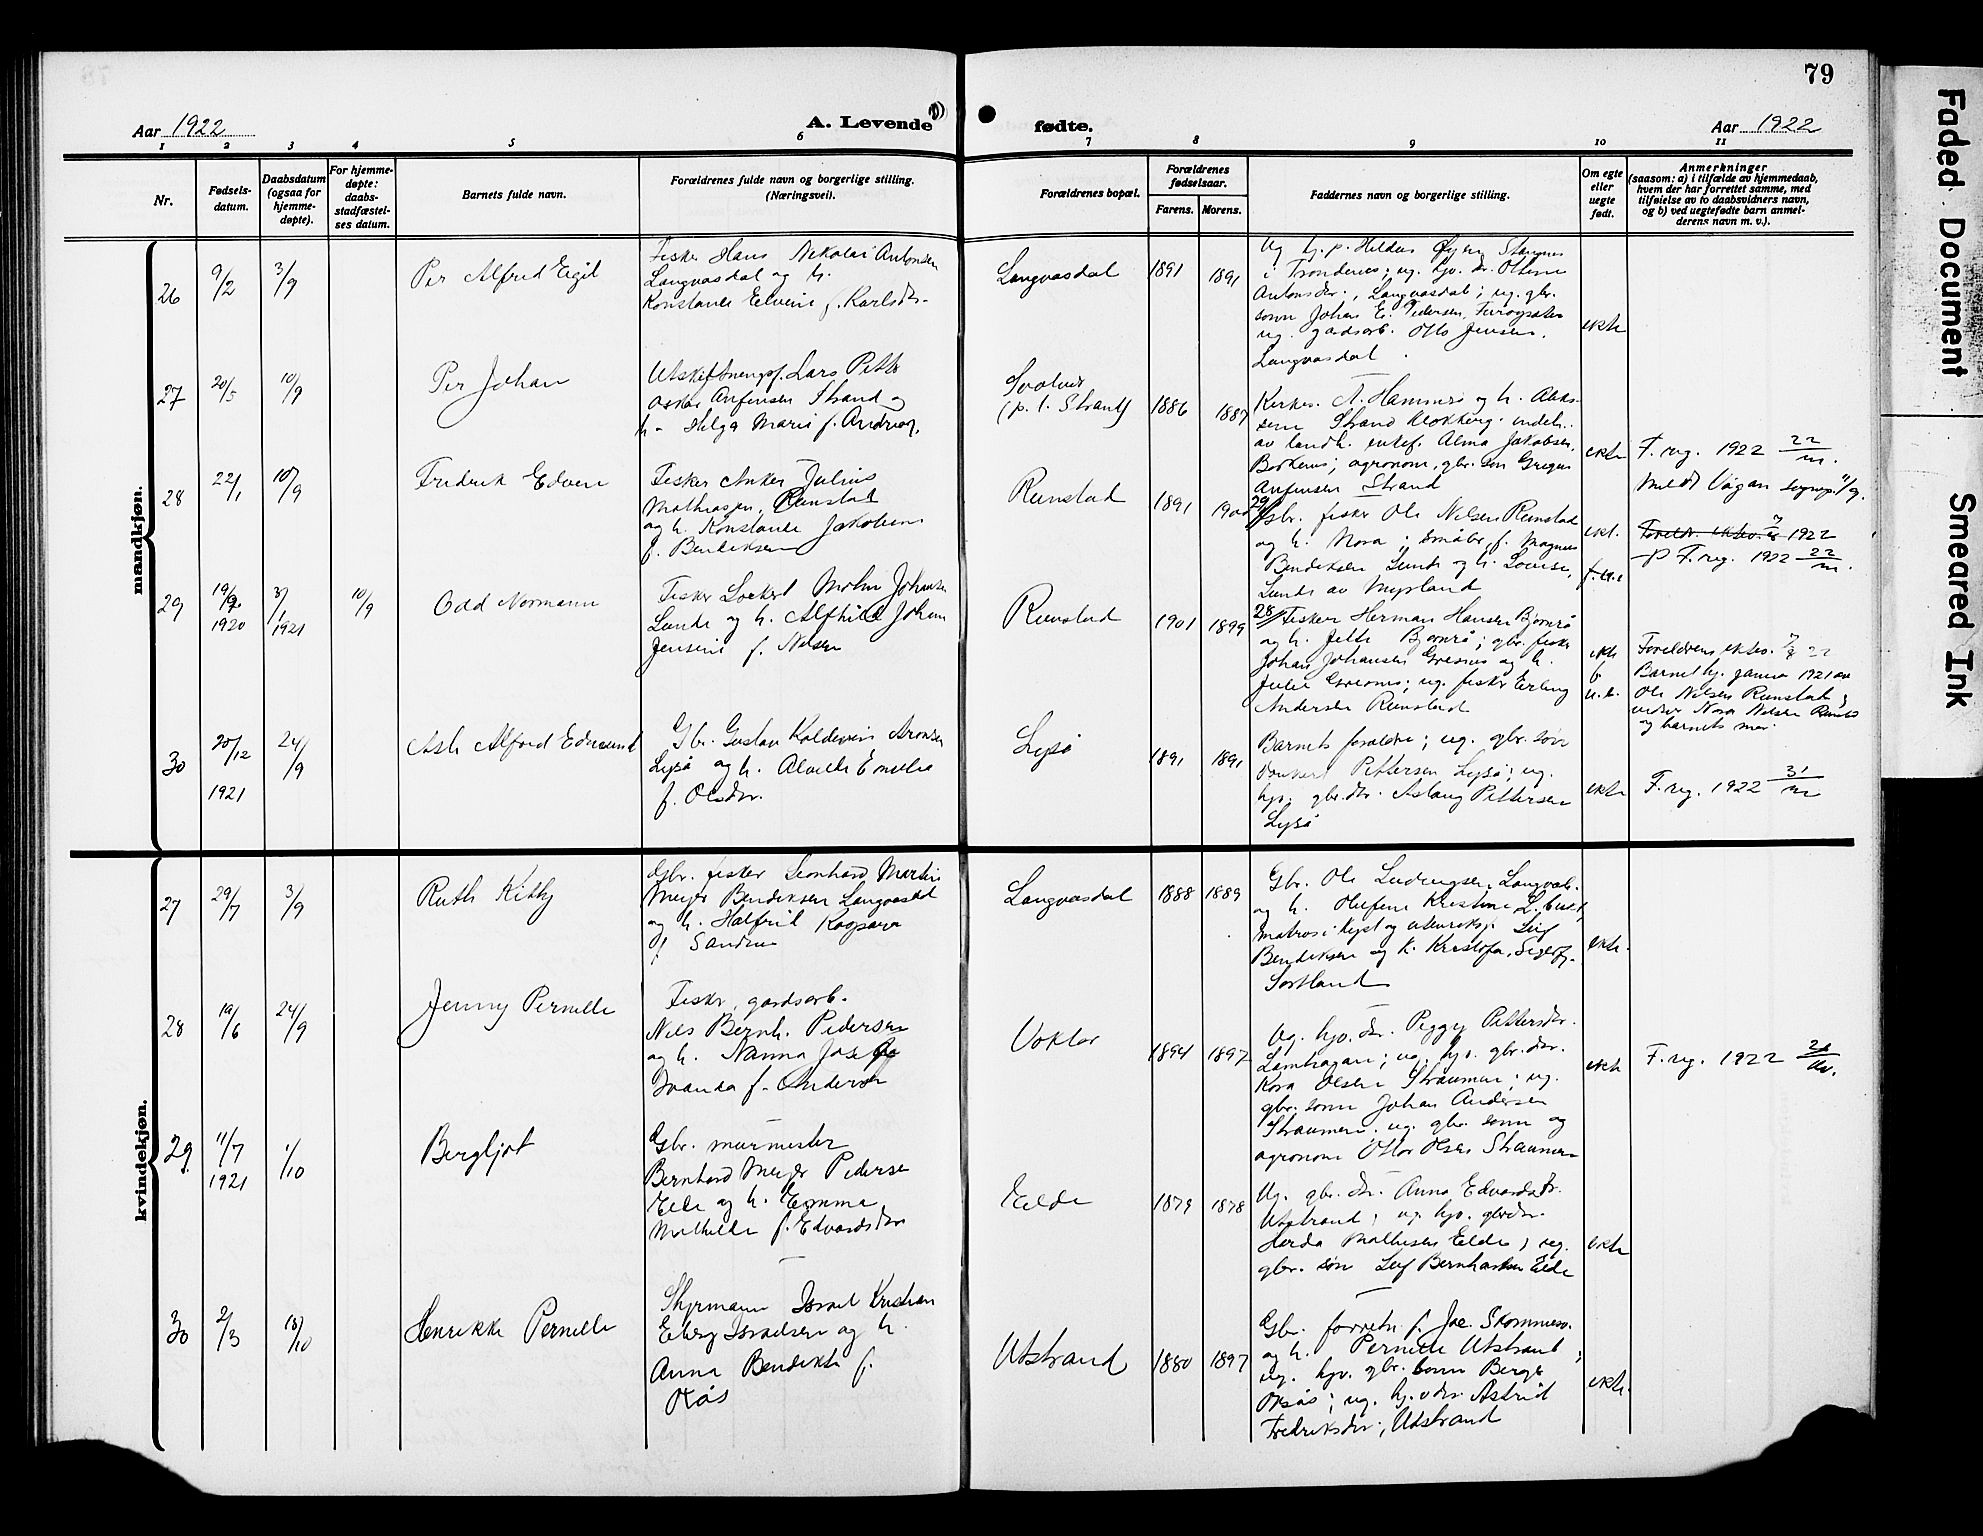 79
Aar 1922
A. Levende
fødte.
Aar 1922
1 2 3 4 5 6 7 8 9 10 11
Nr.
Fødsels-
datum.
Daabsdatum
(ogsaa for
hjemme-
døpte).
For hjemme-
døpte:
daabs-
stadfæstel-
ses datum.
Barnets fulde navn.
Forældrenes fulde navn og borgerlige stilling.
(Næringsvei).
Forældrenes bopæl.
Forældrenes
fødselsaar.
Farens. Morens.
Faddernes navn og borgerlige stilling.
Om egte
eller
uegte
født.
Anmerkninger
(saasom: a) i tilfælde av hjemmedaab,
hvem der har forrettet samme, med
tilføielse av to daabsvidners navn,
og b) ved uegtefødte barn anmel-
derens navn m. v.).
mandkjøn.
26
9/2
3/9
Per Alfred Eigil
Fisker Hans Nikolai Antonsen
Langvasdal og h.
Konstanse Elvine f. Karlsdr.
Langvasdal
1891
1891
i Trondenes; ug. hjv. dr.
Antonsdr., Langvasdal; ug. gbr.
sønn Johan E. Pedersen,
ug. gardsarb. Otto Jensen,
Langvasdal.
ekte
27
20/5
10/9
Per Johan
Utskiftningsf. Lars Petter
Oskar Anfinsen Strand og
h. Helga Marie f. Andreas.
Svolvær
(p. t. Strand)
1886
1887
Kirkes. A. Hammerø og h.
Strand
av landh. Alma Jakobsen,
agronom, gbr. søn
Anfinsen Strand
ekte
F. reg. 1922 22/m.
Meldt Vågan sognep. 11/9.
28
22/1
10/9
Fredrik Edvin
Fisker Anker Julius
Mathiasen, Reinstad
og h. Konstanse Jakobine
f. Bendiksen
Reinstad
1891
29/
Gbr. fisker Ole Nilsen Reinstad
og h. Nora; småbr. f. Magnus
Bendiksen Lunde og h. Lovise,
Lunde av Myrland
ekt.
1922
F. reg. 1922 22/m.
29
19/9
1920
3/1
1921
10/9
Odd Normann
Fisker Lockert Molin Johansen
Lunde og h. Alfhild Johan
Jensine f. Nilsen
Reinstad
1901
1899
28/ Fisker Herman Hansen Bjørnrå
og h. Jette Bjørnrå; gbr. fisker
Johan Johansen og h.
Julie; ug. fisker Erling
Andersen Reinstad
ekte
Foreldrene ektev. 22
Barnet hj. januar 1921 av
Ole Nilsen Reinstad;
Nora Nilsen
og barnets mor
30
20/12
1921
24/9
Asle Alfred Edmund
Gbr. Gustav Koldevin Aronsen
Lysø og h. Alvilde Emelie
f. Olsdr.
Lysø
1891
1891
Barnets foreldre; ug. gbr. søn
Pettersen Lysø; ug.
hjv. gbr. dtr. Aslaug Pettersen
Lysø
ekte
F. reg. 1922 31/m
kvindekjøn.
27
29/7
3/9
Ruth Kitty
Gbr. fisker Leonhard Martin
Meyer Bendiksen Langvasdal
og h. Halfrid Kaspara
f. Sandnes
Langvasdal
1888
1889
Gbr. Ole Ludvigsen, Langvasd.
og h. Olufine Kristine
matros i kyst og utenriksf. Leif
Bendiksen og h. Kristofa, Sigerfj.
Sortland
ekte.
28
19/6
24/9
Jenny Pernelle
Fisker, gardsarb.
Nils Bernh. Pedersen
og h. Nanna Josefa
Wanda f. Anderson
Voktor
1894
1897
Ug. hjv. dr. Peggy Pettersdr.
Lamhagan; ug. hjv. gbr. dr.
Kora Olsen Straumen; ug.
gbr. sønn Johan Andersen
Straumen. ug. gbr. sønn og
agronom Ottar Olsen Straumen
ekte
F. reg. 1922
29
11/7
1921
1/10
Bergljot
Gbr. murmester
Bernhard Meyer Pedersen
Eide og h. Emma
Mathilde f. Edvardsdr
Eide
1879
1878
Ug. gbr. dr. Anna Edvardsdr.
Utstrand; ug. hjv. gbrdr.
Herda Mathisen Eide; ug.
gbr. søn Leif Bernhardsen Eide
ekte
30
2/3
18/10
Henrikke Pernelle
Styrmann Israel Kristian
Eberg Israelsen og h.
Anna Bendikte f.
Oksås
Utstrand
1880
1897
Gbr. forretn. f. Joe.
og h. Pernelle Utstrand;
ug. hjv. gbr. sønn Berge
Oksås; ug. hj. v. dr. Astrid
Fredriksdr; Utstrand
ekte.
Faded Document
Smeared Ink